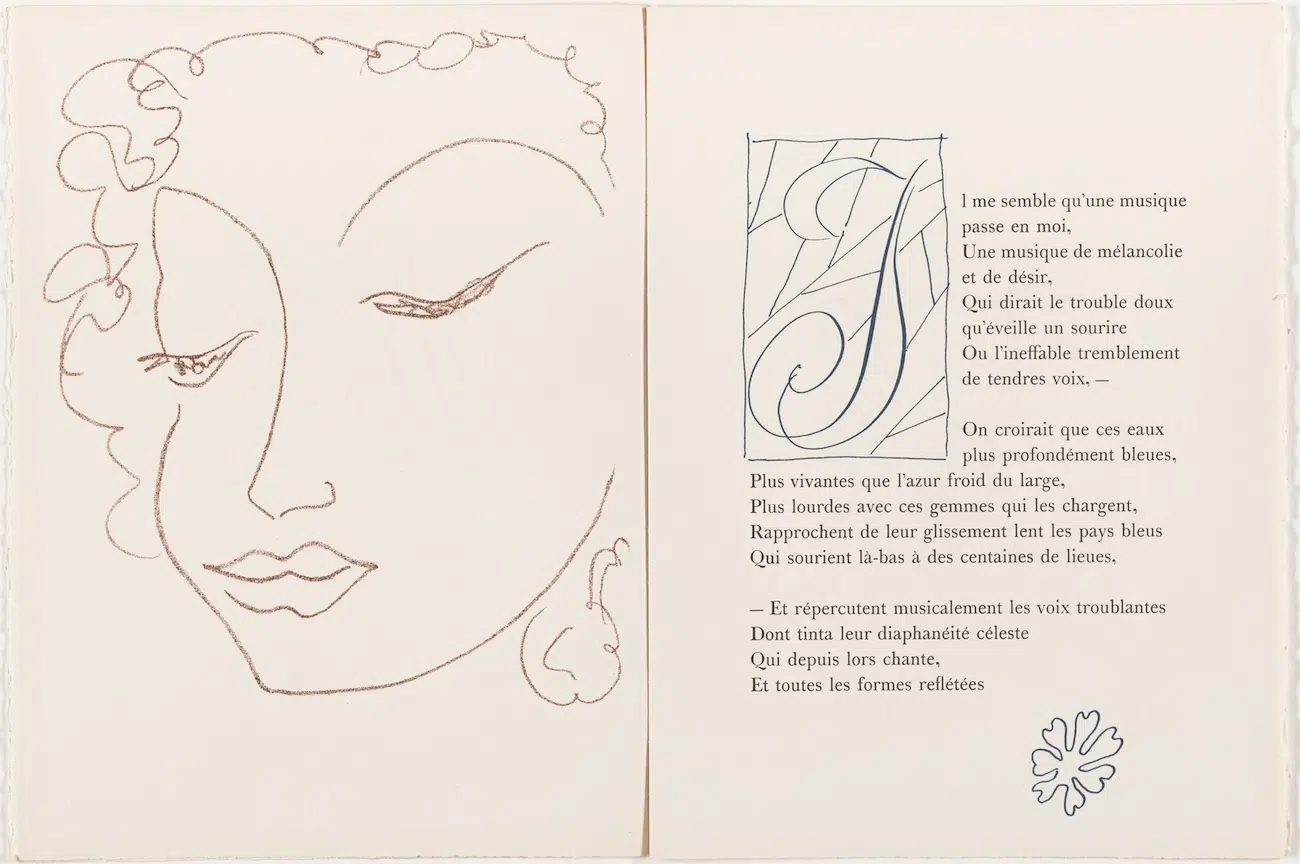 Il me semble qu'une musique
passe en moi,
Une musique de mélancolie
et de désir,
Qui dirait le trouble doux
qu'éveille un sourire
Ou l'ineffable tremblement
de tendres voix, —
On croirait que ces eaux
plus profondément bleues,
Plus vivantes que l'azur froid du large,
Plus lourdes avec ces gemmes qui les chargent,
Rapprochent de leur glissement lent les pays bleus
Qui sourient là-bas à des centaines de lieues,
— Et répercutent musicalement les voix troublantes
Dont tinta leur diaphanéité céleste
Qui depuis lors chante,
Et toutes les formes reflétées